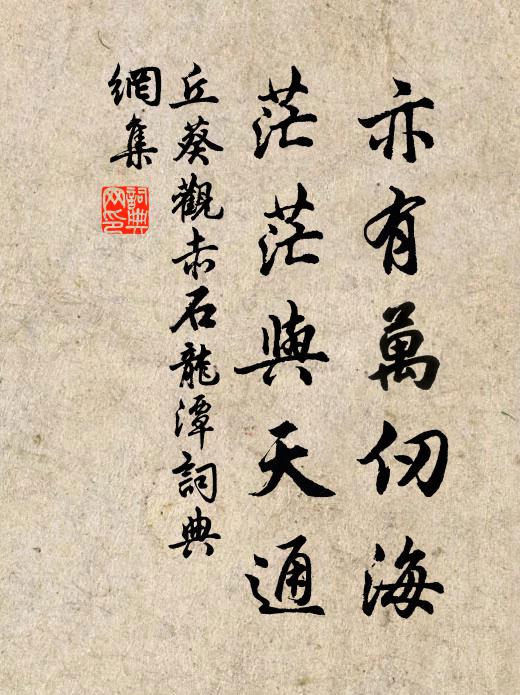 亦有萬仞海
茫茫與天通
丘葵觀赤石龍潭詞典
網集
詞典
网印